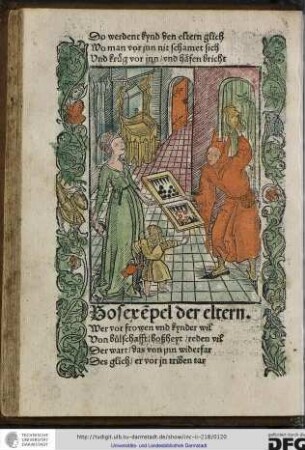 Do werdent kynd den eltern glich
Wo man vor jnn nit schamet sich
Vnd krůg vor jnn / vnd häfen bricht
Bos exẽpel der eltern.
Wer vor frowen vnd kynder wil
Von bůlschafft / boßheyt / reden vil
Der wart / das von jnn widerfar
Des glich / er vor jn triben tar
TECHNISCHE
UNIVERSITÄT
DARMSTADT
http://tudigit.ulb.tu-darmstadt.de/show/inc-iv-218/0120
Universitäts- und Landesbibliothek Darmstadt
DFG